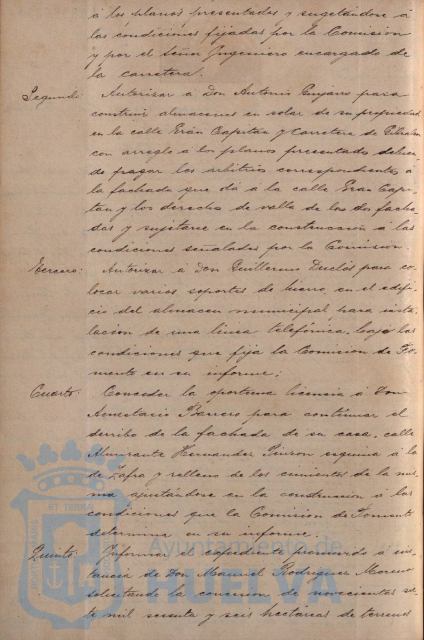 á los planos presentados y sugetándose á
las condiciones fijadas por la Comision
y por el Señor Yngeniero encargado de
la carretera.
Segundo: Autorizar a Don Antonio para
construir almacenes en solar de su propiedad
en la calle Gran Capitán y Carretera de
con arreglo a los planos presentados debien
do pagar los arbitrios correspondientes á
la fachada que dá á la calle Gran Capi
tan y los derechos de valla de las dos facha
das y sujetarse en la construccion á las
condiciones señaladas por la Comision.
Tercero: Autorizar a Don Guillermo Duclós para co
locar varios soportes de hierro en el edifi
cio del almacen municipal para insta
lacion de una linea telefónica, bajo las
condiciones que fija la Comision de Fo
mento en su informe.
Cuarto: Conceder la oportuna licencia á Don
Anastacio Barrero para continuar el
derribo de la fachada de su casa, calle
Almirante Hernandez Pinzon esquina á la
de Zafra y relleno de los cimientos de la mis
ma ajustándose en la construccion á las
condiciones que la Comision de Fomento
determina en su informe.
Quinto: Informar el expediente promovido á ins
tancia de Don Manuel Rodriguez Moreno
solicitando la concesion de novecientas se
te mil sesenta y seis hectáreas de terreno
Ayuntamiento de
HUELVA